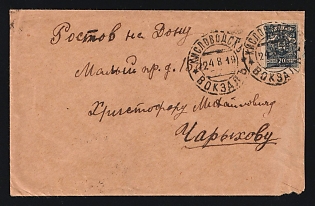 Ростов на Дону
Малый пр. д.
Христофору Михайловичу
Чарыхову
КИСЛОВОДСКЪ
24 8 19
ВОКЗАЛЪ